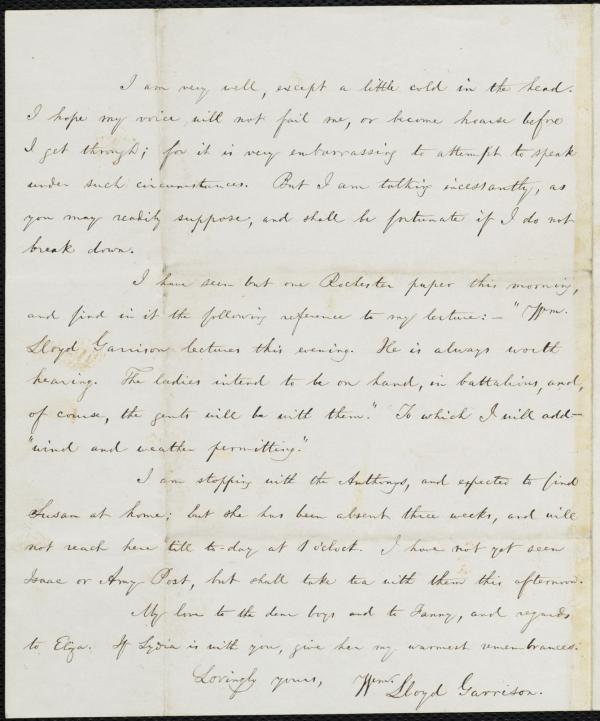 I am very well, except a little cold in the head.
I hope my voice will not fail me, or become hoarse before
I get through; for it is very embarrassing to attempt to speak
under such circumstances. But I am talking incessantly, as
you may readily suppose, and shall be fortunate if I do not
break down.
I have seen but one Rochester paper this morning,
and find in it the following reference to my lecture:— "Wm.
Lloyd Garrison lectures this evening. He is always worth
hearing. The ladies intend to be on hand, in battalions, and,
of course, the gents will be with them." To which I will add—
"wind and weather permitting."
I am stopping with the Anthonys, and expected to find
Susan at home; but she has been absent three weeks, and will
not reach here till to-day at 1 o'clock. I have not yet seen
Isaac or Amy Post, but shall take tea with them this afternoon.
My love to the dear boys and to Fanny, and regards
to Eliza. If Lydia is with you, give her my warmest remembrances.
Lovingly yours, Wm. Lloyd Garrison.